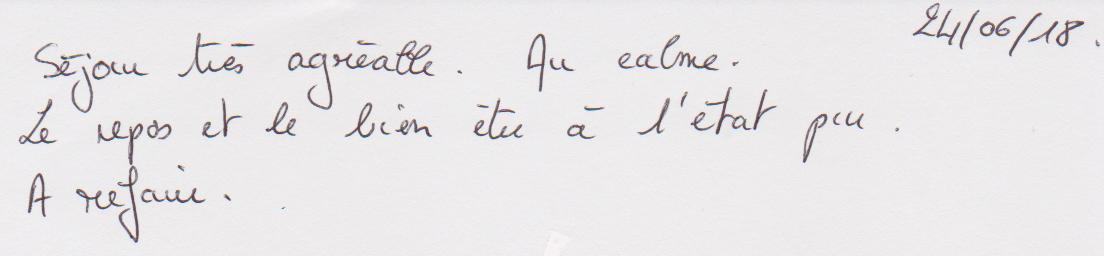 24/06/18.
Séjour très agréable. Au calme.
Le repos et le bien être à l'état pur.
A refaire.